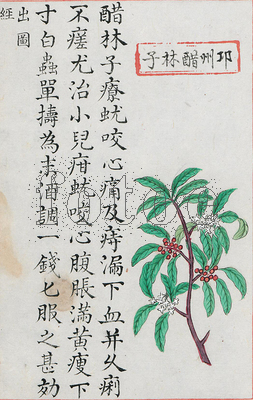 邛州醋林子
醋林子療蚘咬心痛及痔漏下血并久痢
不瘥尤治小兒疳蚘咬心腹脹滿黄瘦下
寸白蟲單擣為末酒調一錢匕服之甚効
出圖
經